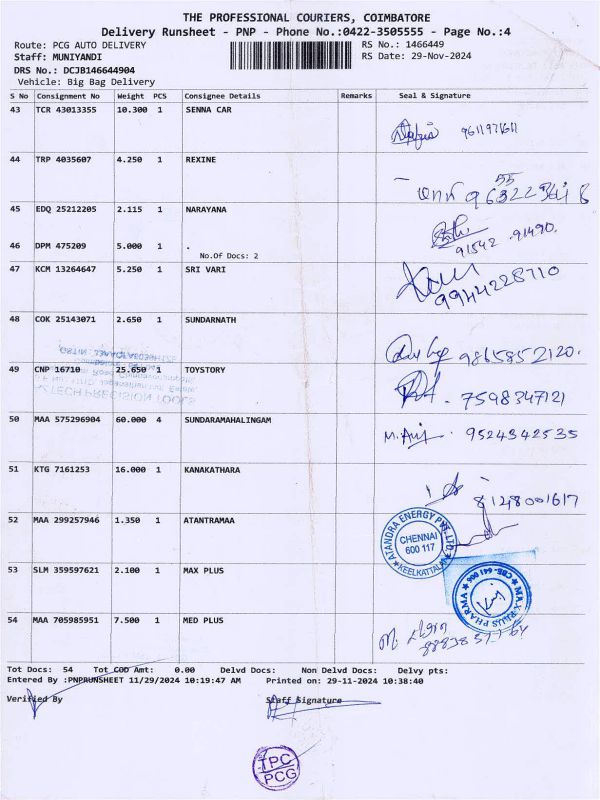 THE PROFESSIONAL COURIERS, COIMBATORE
Delivery Runsheet - PNP - Phone No.:0422-3505555 - Page No.:4
Route: PCG AUTO DELIVERY
RS No.: 1466449
Staff: MUNIYANDI
RS Date: 29-Nov-2024
DRS No.: DCJB146644904
Vehicle: Big Bag Delivery
S No Consignment No Weight PCS Consignee Details Remarks Seal & Signature
43 TCR 43013355 10.300 1 SENNA CAR
9611971611
44 TRP 4035607 4.250 1 REXINE
45 EDQ 25212205 2.115 1 NARAYANA
91542 91490.
46 DPM 475209 5.000 1 .
No.Of Docs: 2
47 KCM 13264647 5.250 1 SRI VARI
9944228710
48 COK 25143071 2.650 1 SUNDARNATH
9865852120.
49 CNP 16710 25.650 1 TOYSTORY
7598347121
50 MAA 575296904 60.000 4 SUNDARAMAHALINGAM
9524342535
51 KTG 7161253 16.000 1 KANAKATHARA
8148001617
52 MAA 299257946 1.350 1 ATANTRAMAA
ATANDRA ENERGY PVT. LTD
CHENNAI
600 117
KEELKATTALAI
53 SLM 359597621 2.100 1 MAX PLUS
MAX PLUS PHARMA
CBE- 641 006
54 MAA 705985951 7.500 1 MED PLUS
Tot Docs: 54 Tot COD Amt: 0.00 Delvd Docs: Non Delvd Docs: Delvy pts:
Entered By :PNPRUNSHEET 11/29/2024 10:19:47 AM Printed on: 29-11-2024 10:38:40
Verified By Staff Signature
TPC
PCG